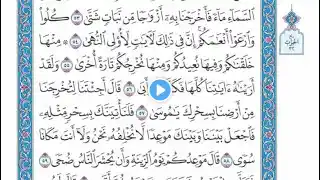 السَّمَاءِ مَاءً فَأَخْرَجْنَا بِهِ أَزْوَاجًا مِنْ نَبَاتٍ شَتَّىٰ ﴿٥٣﴾ كُلُوا
وَارْعَوْا أَنْعَامَكُمْ إِنَّ فِي ذَٰلِكَ لَآيَاتٍ لِأُولِي النُّهَىٰ ﴿٥٤﴾ مِنْهَا
خَلَقْنَاكُمْ وَفِيهَا نُعِيدُكُمْ وَمِنْهَا نُخْرِجُكُمْ تَارَةً أُخْرَىٰ ﴿٥٥﴾ وَلَقَدْ
أَرَيْنَاهُ آيَاتِنَا كُلَّهَا فَكَذَّبَ وَأَبَىٰ ﴿٥٦﴾ قَالَ أَجِئْتَنَا لِتُخْرِجَنَا
مِنْ أَرْضِنَا بِسِحْرِكَ يَا مُوسَىٰ ﴿٥٧﴾ فَلَنَأْتِيَنَّكَ بِسِحْرٍ مِثْلِهِ
فَاجْعَلْ بَيْنَنَا وَبَيْنَكَ مَوْعِدًا لَا نُخْلِفُهُ نَحْنُ وَلَا أَنْتَ مَكَانًا
سُوًى ﴿٥٨﴾ قَالَ مَوْعِدُكُمْ يَوْمُ الزِّينَةِ وَأَنْ يُحْشَرَ النَّاسُ ضُحًى ﴿٥٩﴾